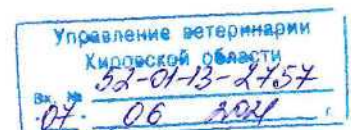 Управление ветеринарии
Кировской области
Вх. № 52-01-13-2757
"07" 06 2021 г.